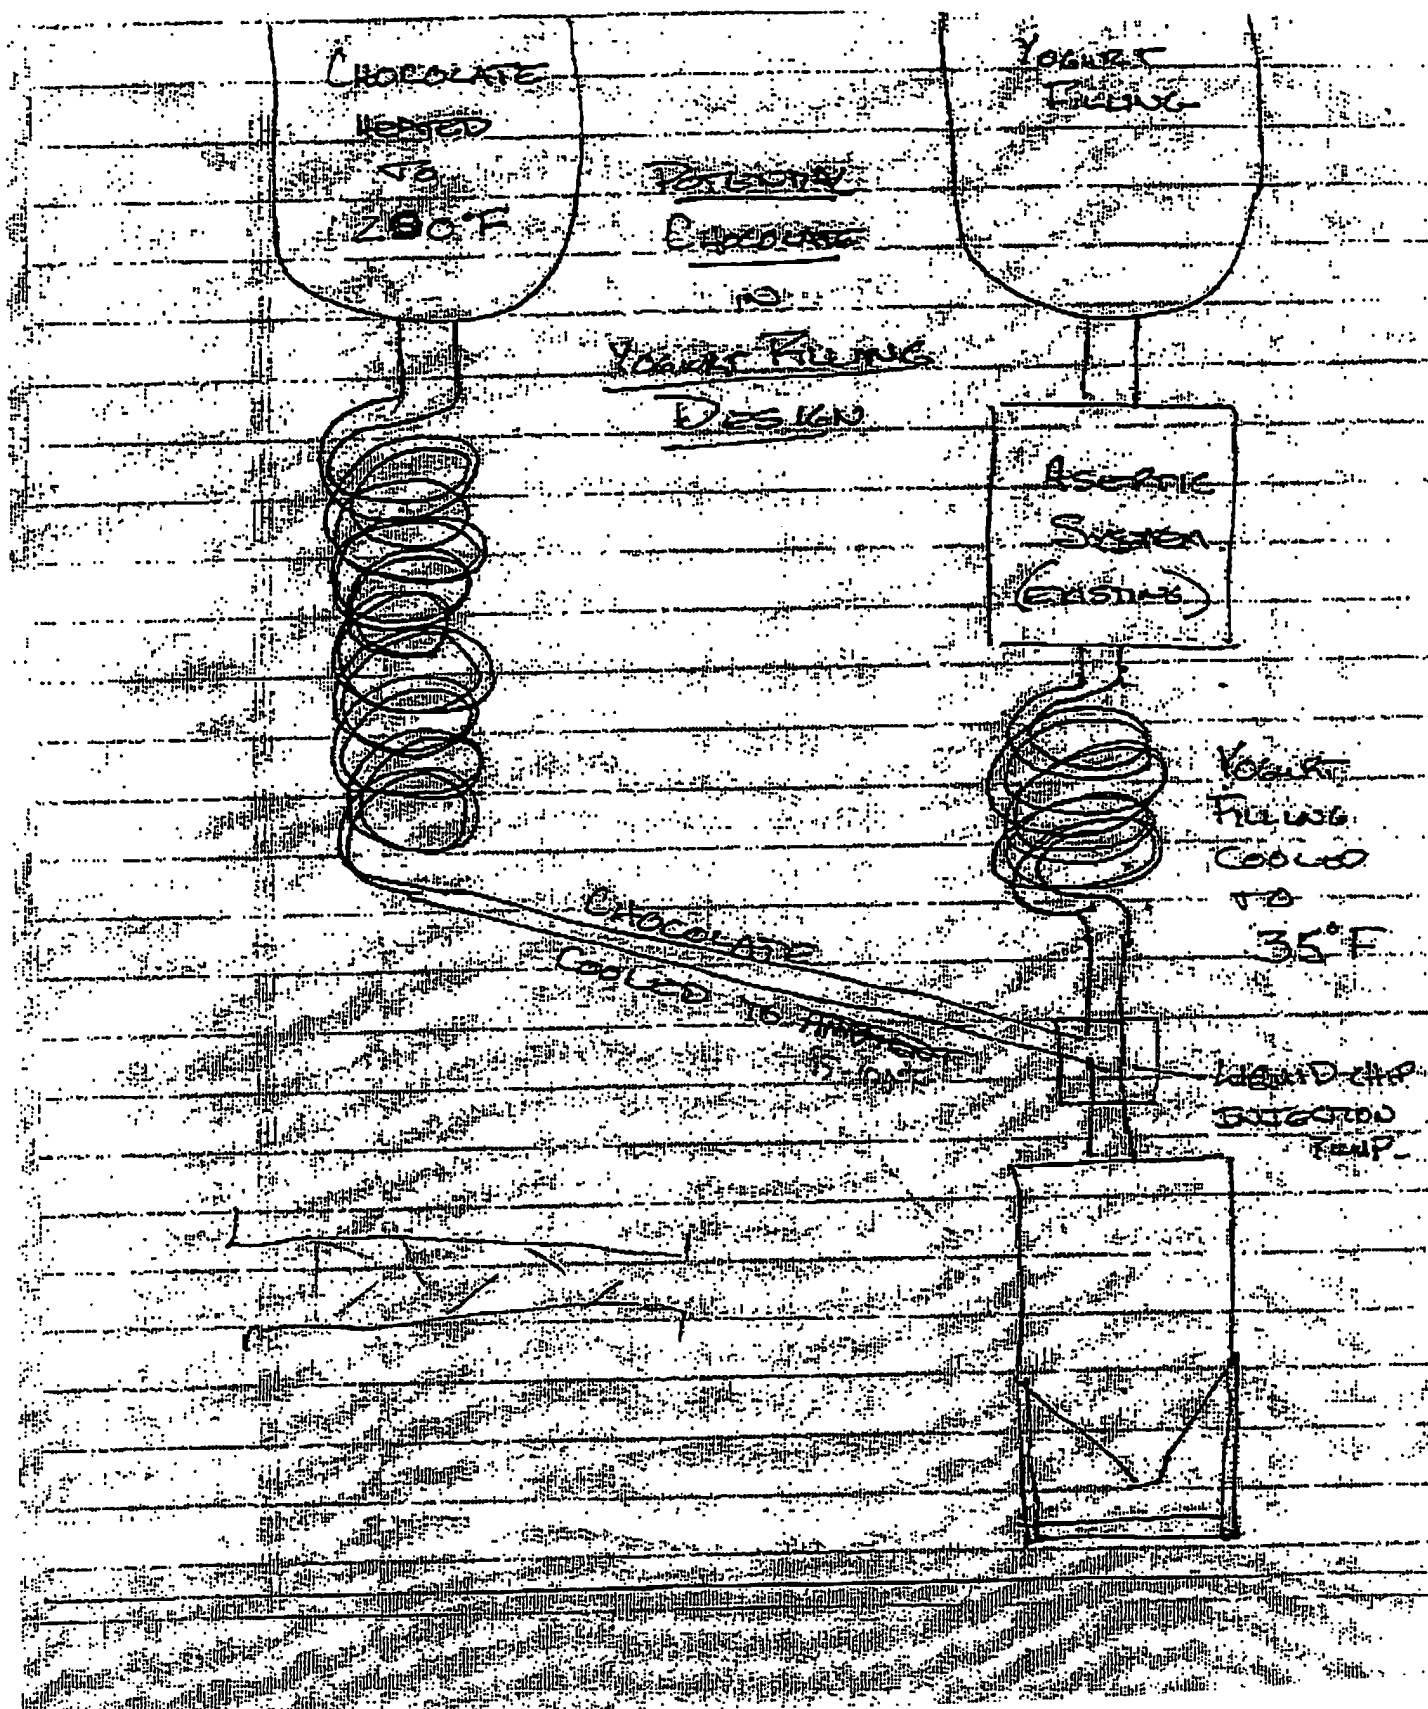 CHOCOLATE
HEATED
TO
280°F
POTENTIAL
CHOCOLATE
TO
YOGURT FILLING
DESIGN
YOGURT
FILLING
ASEPTIC
SYSTEM
(EXISTING)
YOGURT
FILLING
COOLED
TO
35°F
CHOCOLATE
COOLED TO
LIQUID CHIP
INJECTION